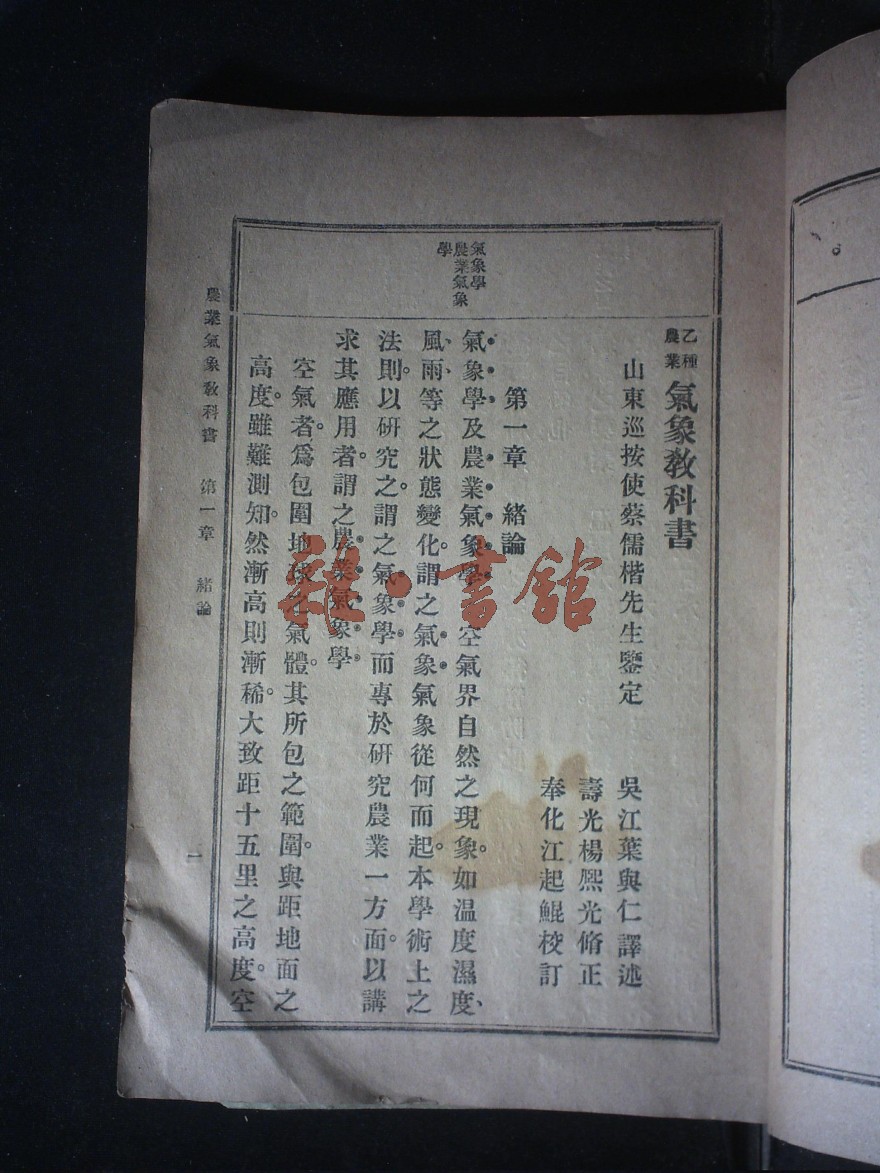 乙種
農業
氣象教科書
山東巡按使蔡儒楷先生鑒定
吳江葉與仁譯述
壽光楊熙光脩正
奉化江起鯤校訂
第一章　緒論
氣象學
農業氣象
學
氣象學及農業氣象學　空氣界自然之現象。如温度、濕度、
風、雨、等之狀態變化。謂之氣象。氣象從何而起。本學術上之
法則。以研究之。謂之氣象學。而專於研究農業一方面。以講
求其應用者。謂之農業氣象學
空氣者。爲包圍地球之氣體。其所包之範圍。與距地面之
高度。雖難測知。然漸高則漸稀。大致距十五里之高度。空
農業氣象教科書　第一章　緒論
一
雜·書館